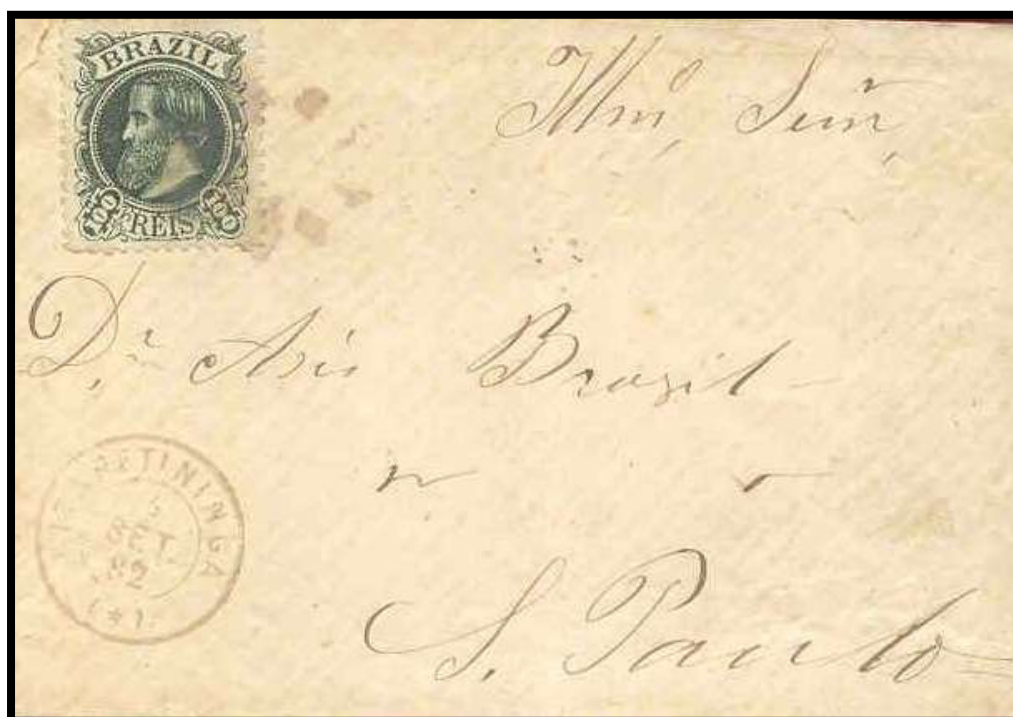 BRAZIL
100 REIS 100
Illmo Senr
Dr Assis Brazil
S. Paulo
ITAPETININGA
SET.
82
(*)